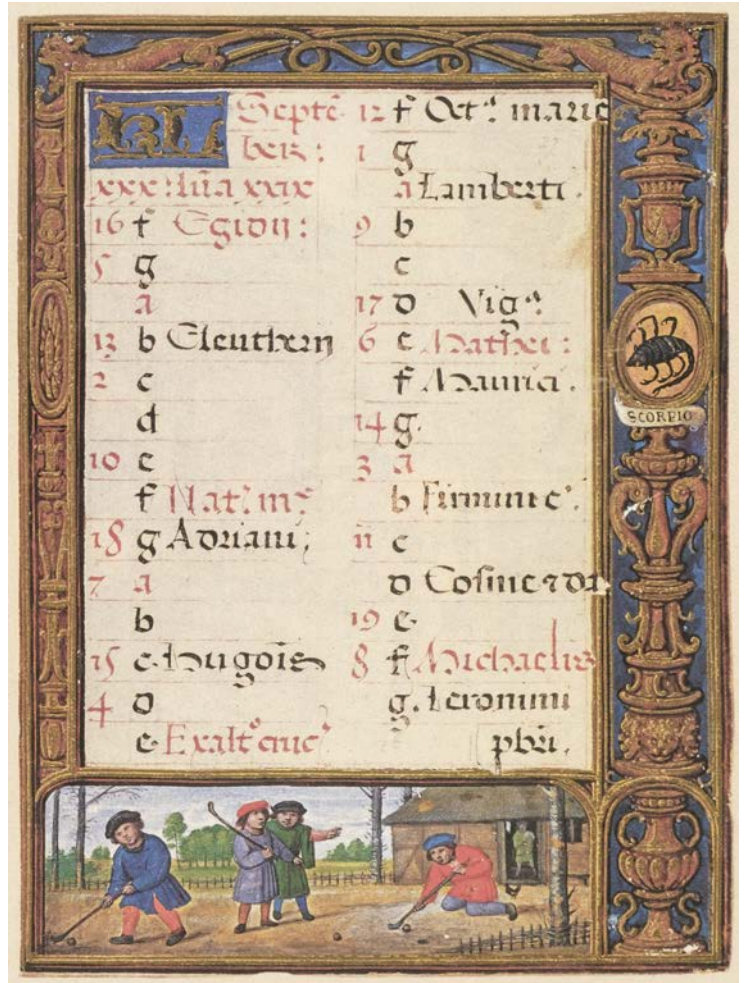 KL Septē
ber:
xxx: lūa xxix
16 f Egidij:
5 g
a
13 b Eleutherij
2 c
d
10 e
f Nat: m
18 g Adriani;
7 a
b
15 c Hugōis
4 d
e Exalt° cruc
12 f Octa marie
1 g
a Lamberti.
9 b
c
17 d Viga
6 e Mathei:
f Mauricii.
14 g.
3 a
b Firmini
11 c
d Cosme
19 e.
8 f Michaelis
g. Ieronimi
pbri.
SCORPIO